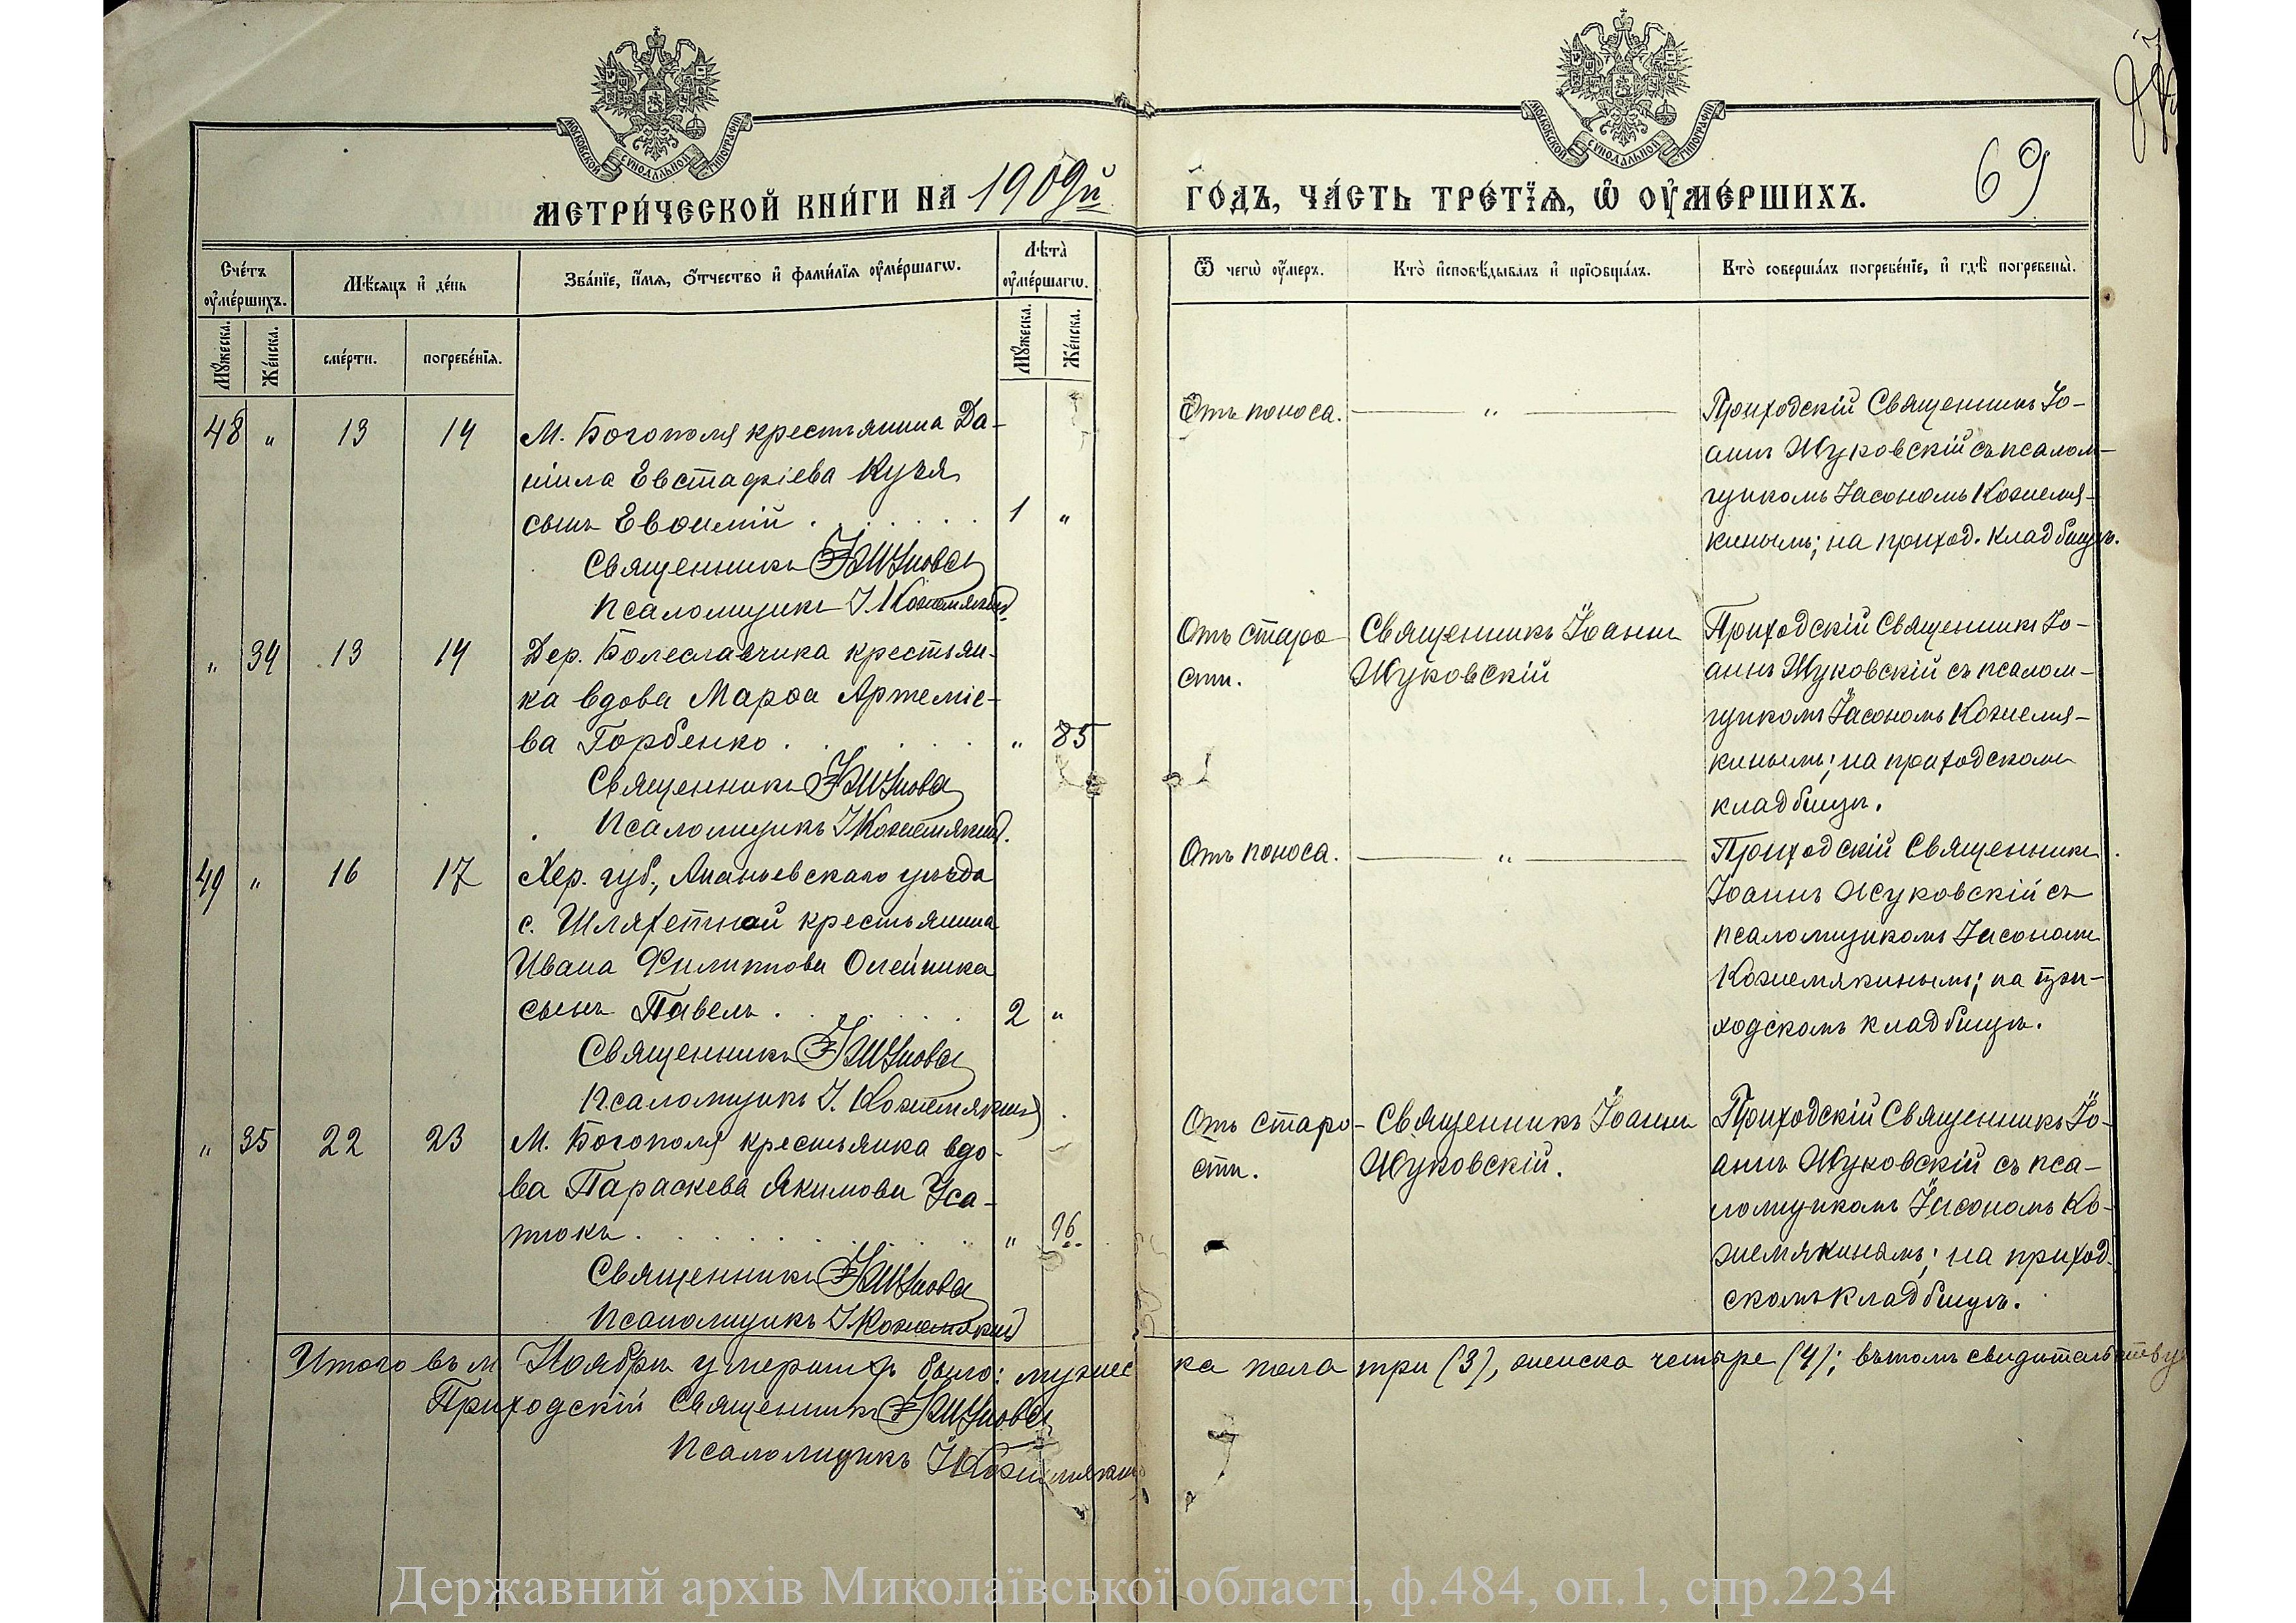 МОСКОВСКОЙ СУНОДАЛЬНОЙ ТИПОГРАФІИ
МОСКОВСКОЙ СУНОДАЛЬНОЙ ТИПОГРАФІИ
69
МЕТРИ́ЧЕСКОЙ КНИ́ГИ НА 1909й ГО́ДЪ, ЧА́СТЬ ТРЕ́ТЇѦ, Ѽ ОУ҆МЕ́РШИХЪ.
Сче́тъ оу҆ме́ршихъ.
Мѣ́сяцъ и҆ де́нь
Зва́нїе, и҆́мѧ, ѻ҆́тчество и҆ фами́лїѧ оу҆ме́ршагѡ.
Лѣ́та оу҆ме́ршагѡ.
Ѿ чегѡ̀ оу҆́меръ.
Кто̀ и҆сповѣ́дывалъ и҆ прїѡбща́лъ.
Кто̀ соверша́лъ погребе́нїе, и҆ гдѣ̀ погребены̀.
Мꙋ́жеска.
Же́нска.
сме́рти.
погребе́нїѧ.
Мꙋ́жеска.
Же́нска.
48 " 13 14
М. Богополя крестьянина Да-
ніила Евстафіева Куча
сынъ Евѳимій . 1 "
Священникъ
Псаломщикъ І. Кожемякин
Отъ поноса.
"
Приходскій Священникъ Іо-
аннъ Жуковскій съ псалом-
щикомъ Іасономъ Кожемя-
кинымъ; на приход. кладбищѣ.
" 34 13 14
Дер. Болеславчика крестьян-
ка вдова Марѳа Артеміе-
ва Горбенко . " 85
Священникъ
Псаломщикъ І Кожемякин.
Отъ старо
сти.
Священникъ Іоаннъ
Жуковскій
Приходскій Священникъ Іо-
аннъ Жуковскій съ псалом-
щикомъ Іасономъ Кожемя-
кинымъ; на приходскомъ
кладбищѣ.
49 " 16 17
Хер. губ., Ананьевскаго уѣзда
с. Шляхетной крестьянина
Ивана Филиппова Олейника
сынъ Павелъ . 2 "
Священникъ
Псаломщикъ І. Кожемякин
Отъ поноса.
"
Приходскій Священникъ
Іоаннъ Жуковскій съ
псаломщикомъ Іасономъ
Кожемякинымъ; на при-
ходскомъ кладбищѣ.
" 35 22 23
М. Богополя крестьянка вдо-
ва Параскева Якимова Уса-
тюкъ . " 96
Священникъ
Псаломщикъ І Кожемякин
Отъ старо-
сти.
Священникъ Іоаннъ
Жуковскій.
Приходскій Священникъ Іо-
аннъ Жуковскій съ пса-
ломщикомъ Іасономъ Ко-
жемякинымъ; на приход
скомъ кладбищѣ.
Итого въ м. Ноябрѣ умершихъ было: мужес ка пола три (3), женска четыре (4); въ томъ свидѣтельствуе
Приходскій Священникъ
Псаломщикъ І Кожемякин
Державний архів Миколаївської області, ф.484, оп.1, спр.2234